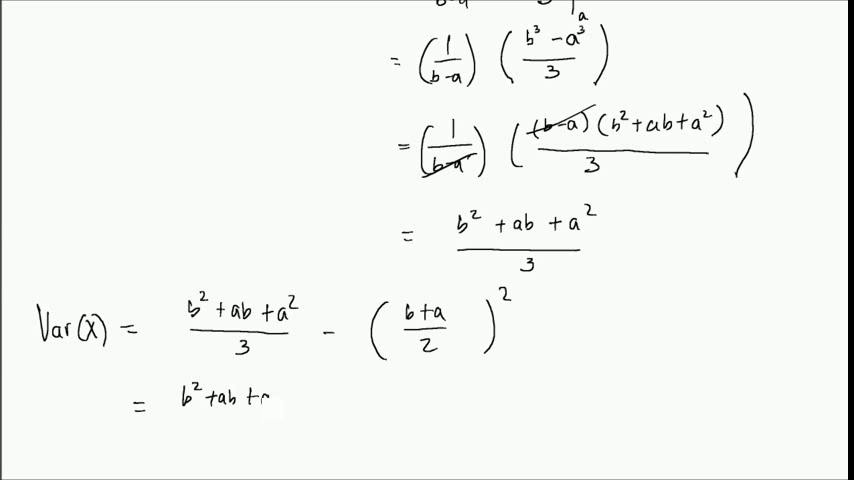 = (1/(b-a)) ((b³ - a³)/3)
= (1/(b-a)) ((b-a)(b² + ab + a²)/3)
= (b² + ab + a²)/3
Var(X) = (b² + ab + a²)/3 - ((b+a)/2)²
= b² + ab +